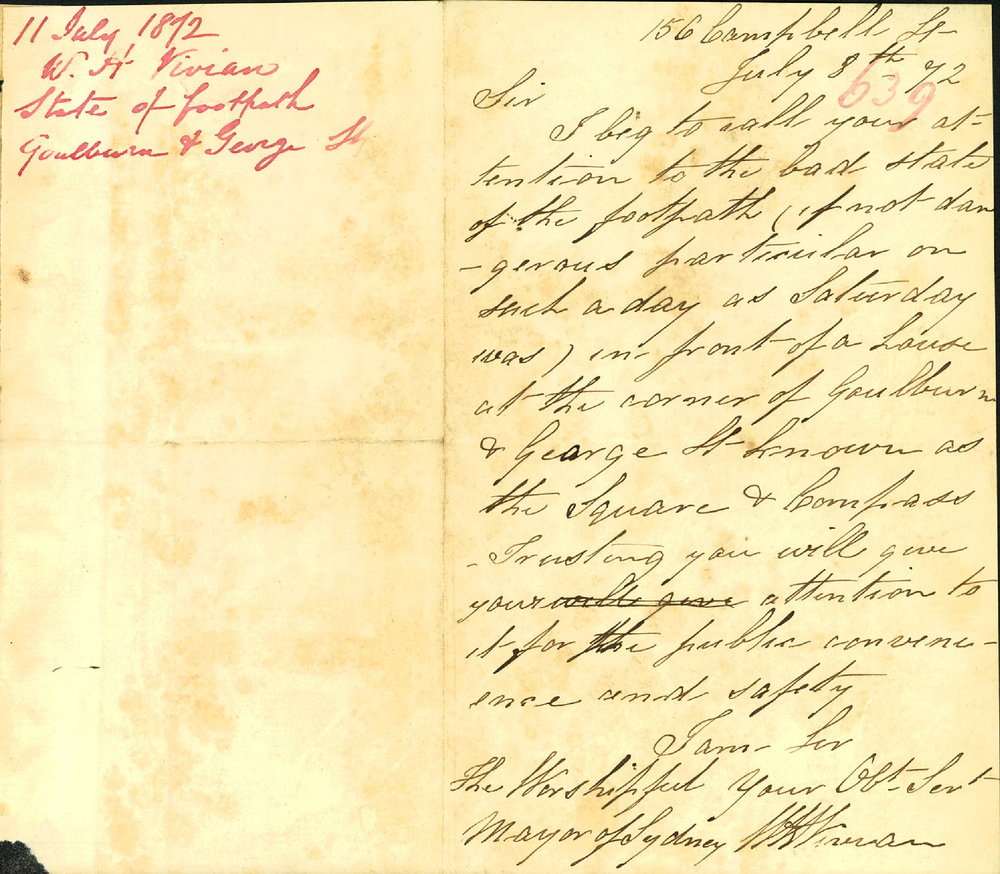 11 July 1872
W. H. Vivian
State of footpath
Goulburn & George St
156 Campbell St
July 8th 72
639
Sir
I beg to call your at-
tention to the bad state
of the footpath (if not dan
-gerous particular on
such a day as Saturday
was) in front of a house
at the corner of Goulburn
& George St known as
the Square & Compass
- Trusting you will give
your will give attention to
it for the public conveni-
ence and safety
I am Sir
The Worshipful Your Obt Sert
Mayor of Sydney WHVivian